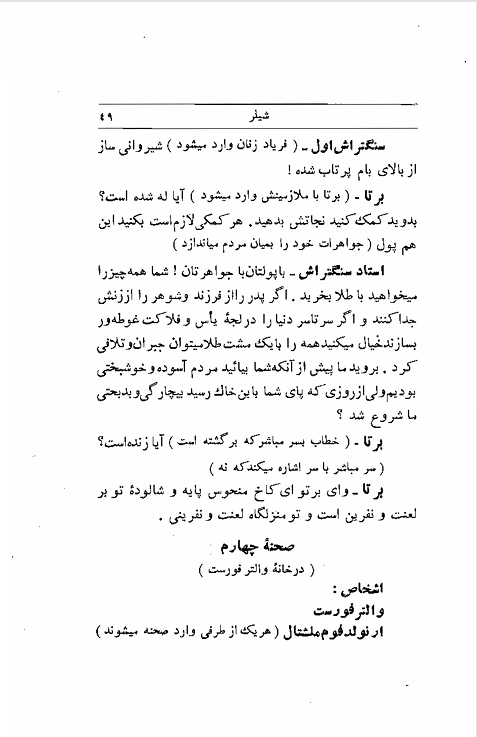 شیلر ۴۹
سنگتراش اول ـ ( فریاد زنان وارد میشود ) شیروانی ساز
از بالای بام پرتاب شده !
برتا ـ ( برتا با ملازمینش وارد میشود ) آیا له شده است؟
بدوید کمک کنید نجاتش بدهید. هر کمکی لازم است بکنید این
هم پول ( جواهرات خود را بمیان مردم میاندازد )
استاد سنگتراش ـ با پولتان با جواهرتان ! شما همه چیز را
میخواهید با طلا بخرید . اگر پدر را از فرزند و شوهر را از زنش
جدا کنند و اگر سرتاسر دنیا را در لجهٔ یأس و فلاکت غوطه‌ور
بسازند خیال میکنید همه را با یک مشت طلا میتوان جبران و تلافی
کرد . بروید ما پیش از آنکه شما بیائید مردم آسوده و خوشبختی
بودیم ولی از روزی که پای شما باین خاک رسید بیچارگی و بدبختی
ما شروع شد ؟
برتا ـ ( خطاب بسر مباشر که برگشته است ) آیا زنده است؟
( سر مباشر با سر اشاره میکند که نه )
برتا ـ وای بر تو ای کاخ منحوس پایه و شالودهٔ تو بر
لعنت و نفرین است و تو منزلگاه لعنت و نفرینی .
صحنهٔ چهارم
( در خانهٔ والتر فورست )
اشخاص :
والتر فورست
ارنولد فوم ملشتال ( هر یک از طرفی وارد صحنه میشوند )